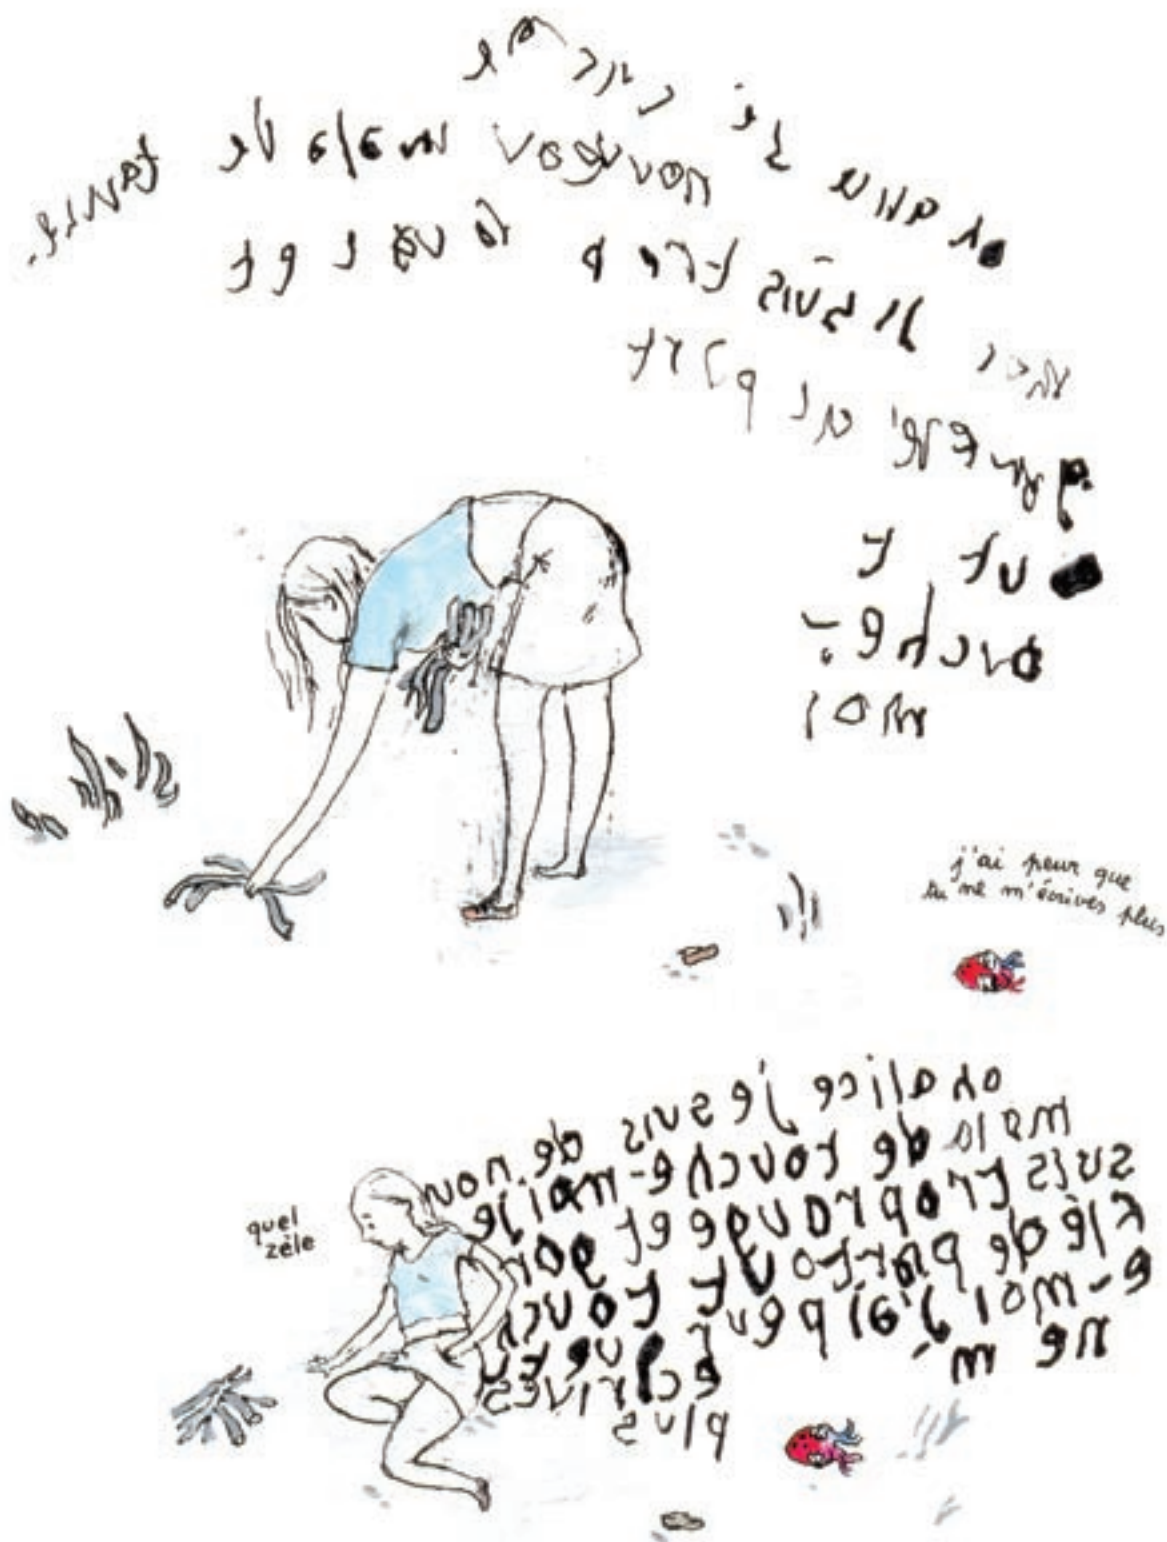 oh alice
nouveau malade touche-
moi je suis trop rouge et
de part
out t
ouche-
moi
j'ai peur que
tu ne m'écrives plus
quel
zèle
oh alice je suis de nou
mala de touche-moi je
suis trop rouge et
de partout touch
e-moi j'ai peur que tu
ne m'
écrives
plus